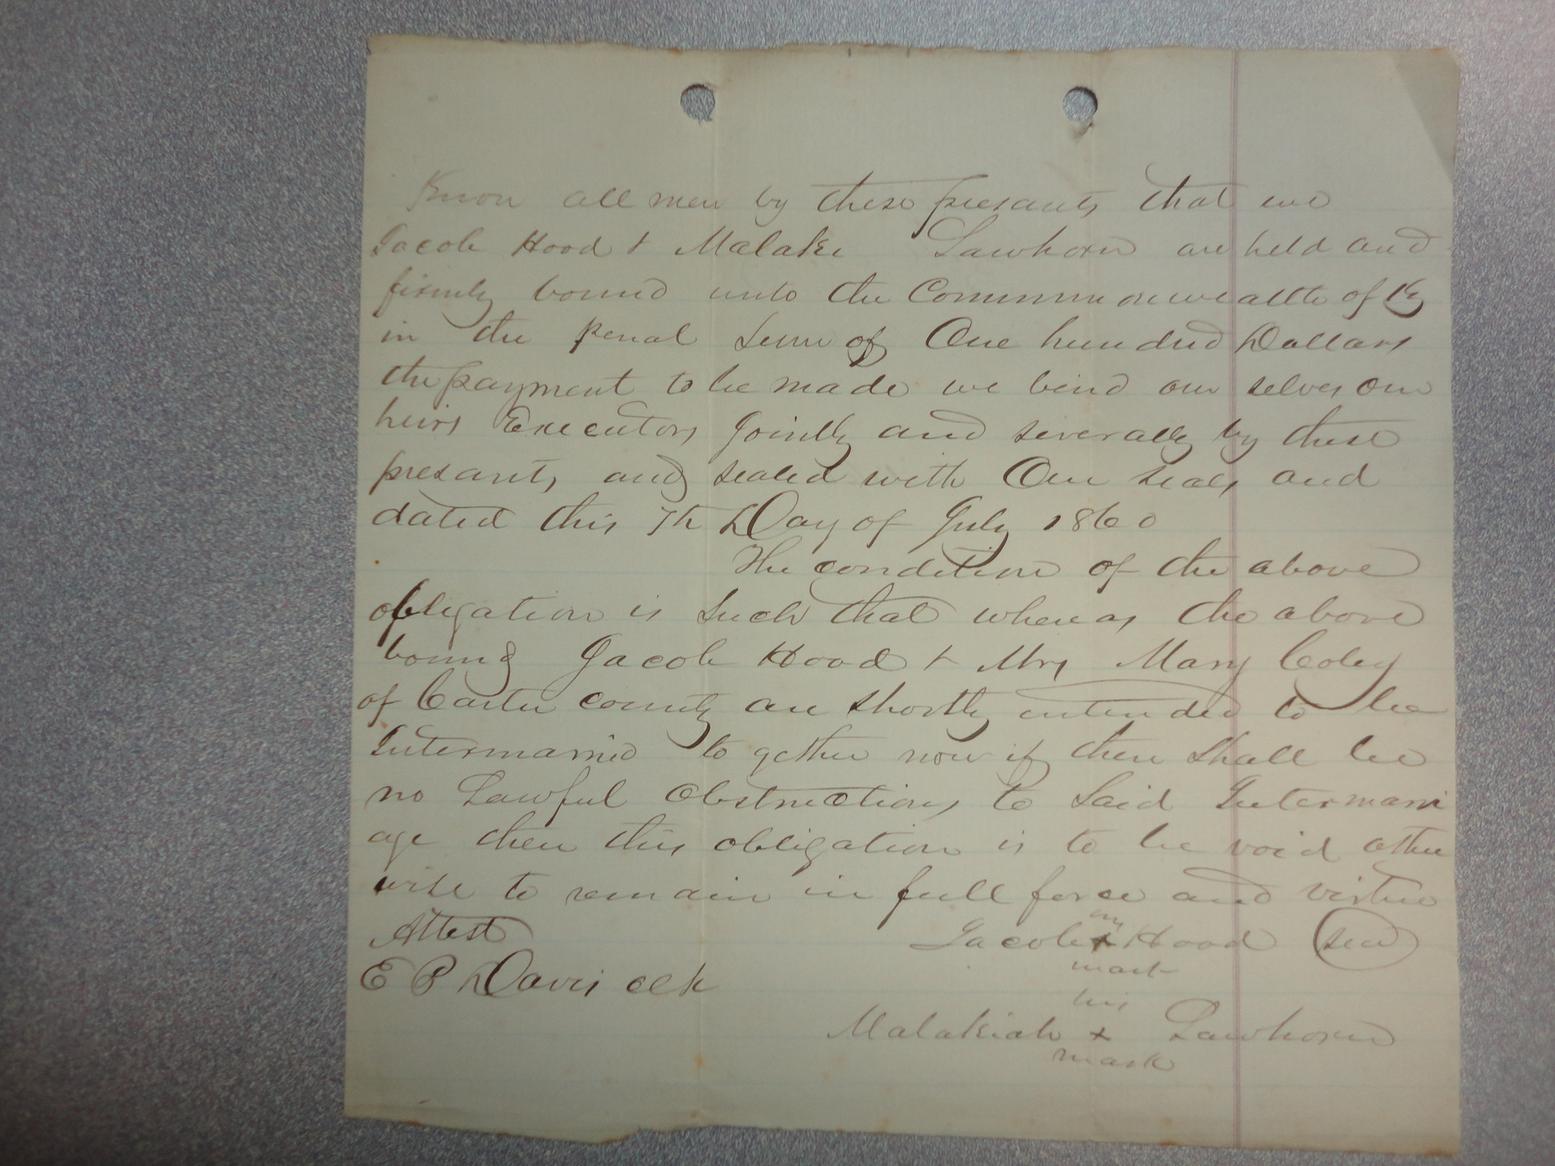 Know all men by these presants that we
Jacob Hood & Malaki Lawhorn are held and
firmly bound unto the Commmonwealth of Ky
in the penal Sum of One hundred Dollars
the payment to be made we bind our selves our
heirs Executors Jointly and severally by these
presants and sealed with Our seals and
dated this 7th Day of July 1860
The condition of the above
obligation is Such that whereas the above
bound Jacob Hood & Mrs Mary Coley
of Carter county are shortly intended to be
Intermarried to gether now if there Shall be
no Lawful Obstructions to Said Intermarri
age then this obligation is to be void other
wise to remain in full force and virtue
Attest
Jacob x Hood
mark
E P Davis clk
his
Malakiah x Lawhorn
mark